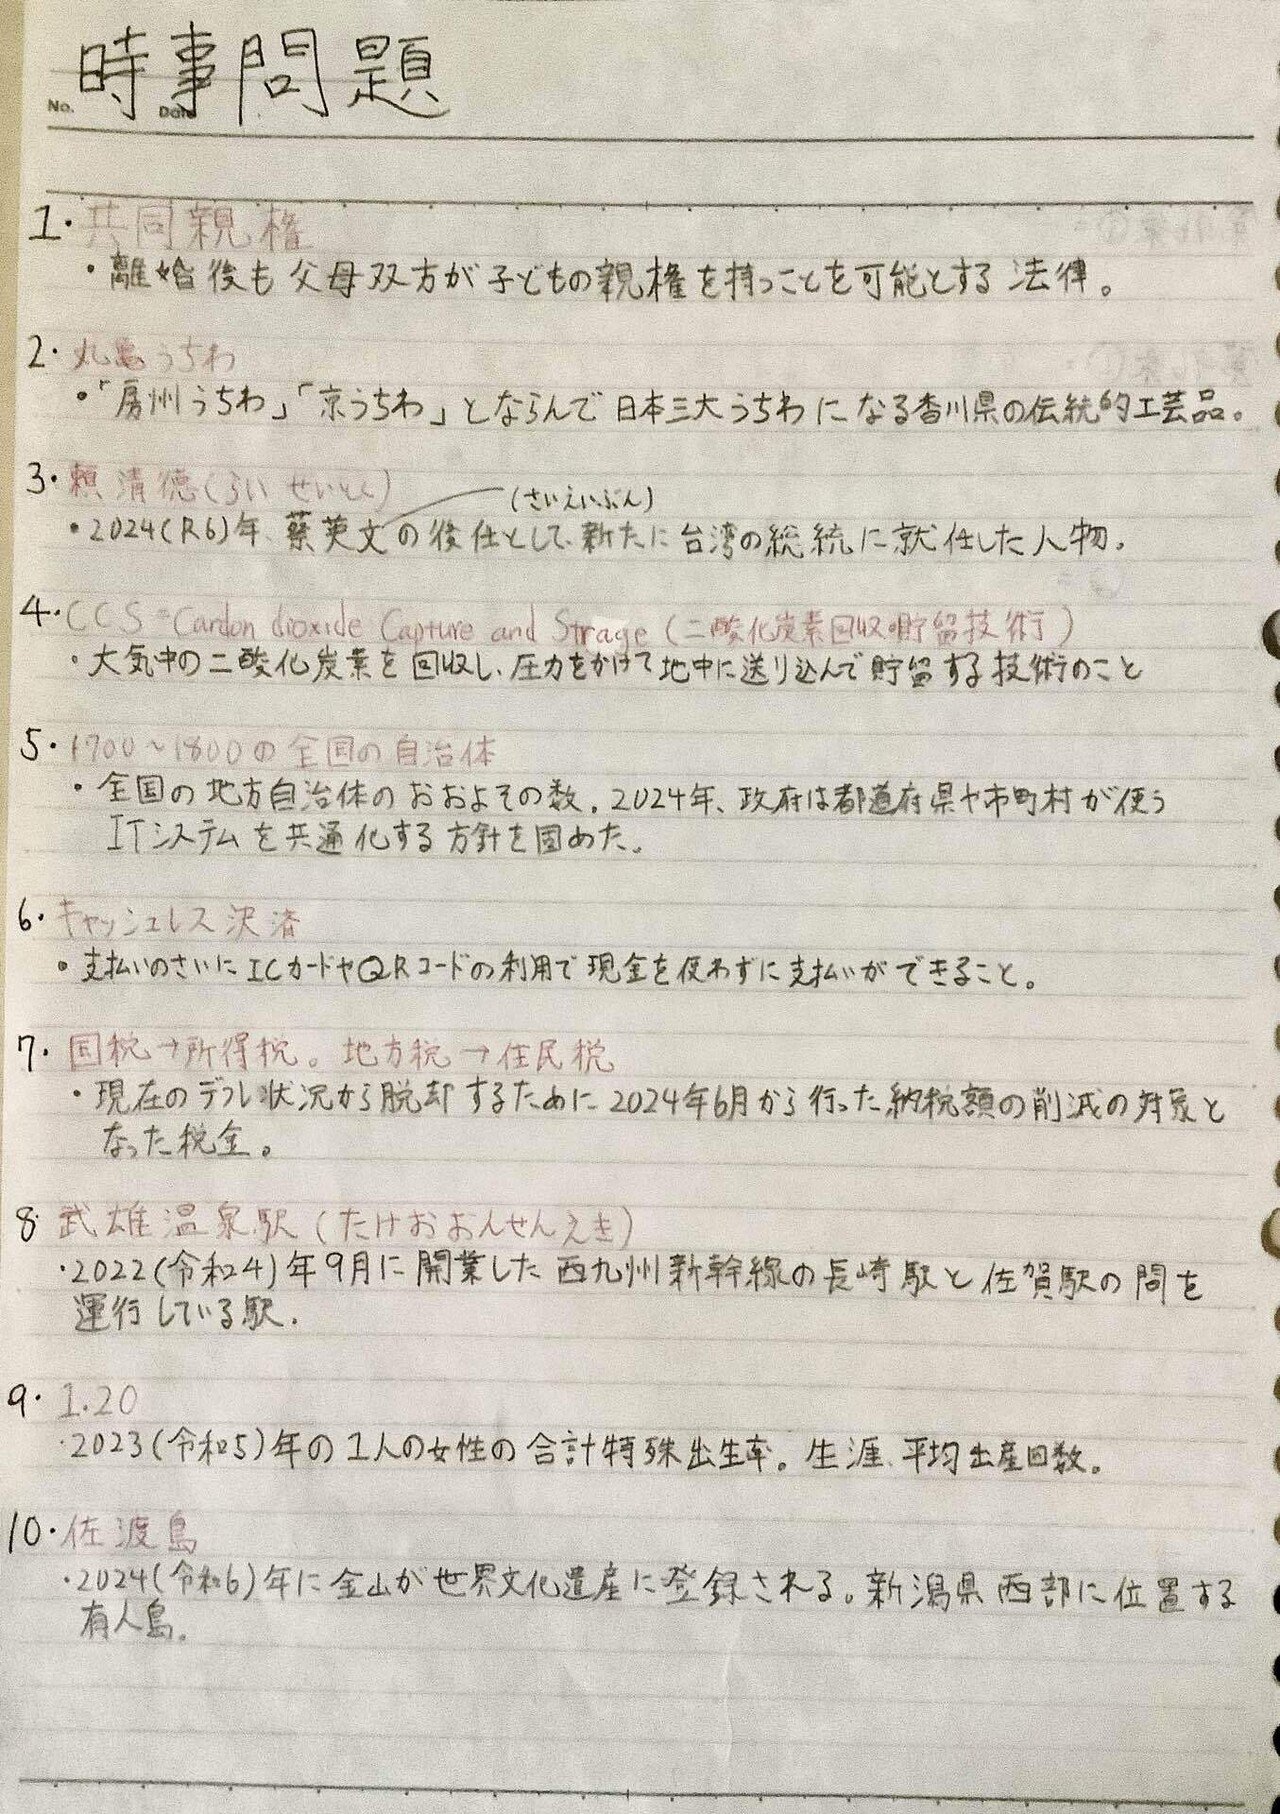 時事問題
No.
Date
1. 共同親権
・離婚後も父母双方が子どもの親権を持つことを可能とする法律。
2. 丸亀うちわ
・「房州うちわ」「京うちわ」とならんで日本三大うちわになる香川県の伝統的工芸品。
3. 頼清徳(らい せいとく)
(さいえいぶん)
・2024(R6)年、蔡英文の後任として、新たに台湾の総統に就任した人物。
4. CCS=Cardon dioxide Capture and Strage (二酸化炭素回収・貯留技術)
・大気中の二酸化炭素を回収し、圧力をかけて地中に送り込んで貯留する技術のこと
5. 1700~1800の全国の自治体
・全国の地方自治体のおおよその数。2024年、政府は都道府県や市町村が使う
ITシステムを共通化する方針を固めた。
6. キャッシュレス決済
・支払いのさいにICカードやQRコードの利用で現金を使わずに支払いができること。
7. 国税→所得税。地方税→住民税
・現在のデフレ状況から脱却するために2024年6月から行った納税額の削減の対象と
なった税金。
8 武雄温泉駅(たけおおんせんえき)
・2022(令和4)年9月に開業した西九州新幹線の長崎駅と佐賀駅の間を
運行している駅.
9. 1.20
・2023(令和5)年の1人の女性の合計特殊出生率。生涯平均出産回数。
10. 佐渡島
・2024(令和6)年に金山が世界文化遺産に登録される。新潟県西部に位置する
有人島。